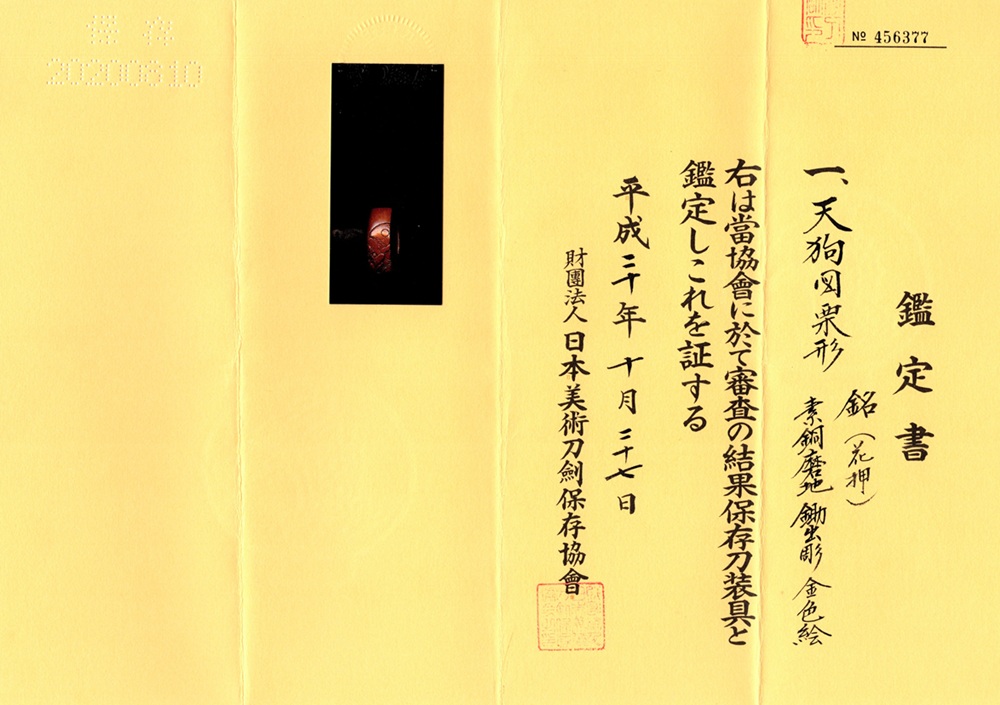 № 456377
鑑定書
一、天狗図栗形
銘（花押）
素銅磨地 鋤出彫 金色絵
右は當協會に於て審査の結果保存刀装具と
鑑定しこれを証する
平成二十年十月二十七日
財團法人日本美術刀劍保存協會
保存
20200810